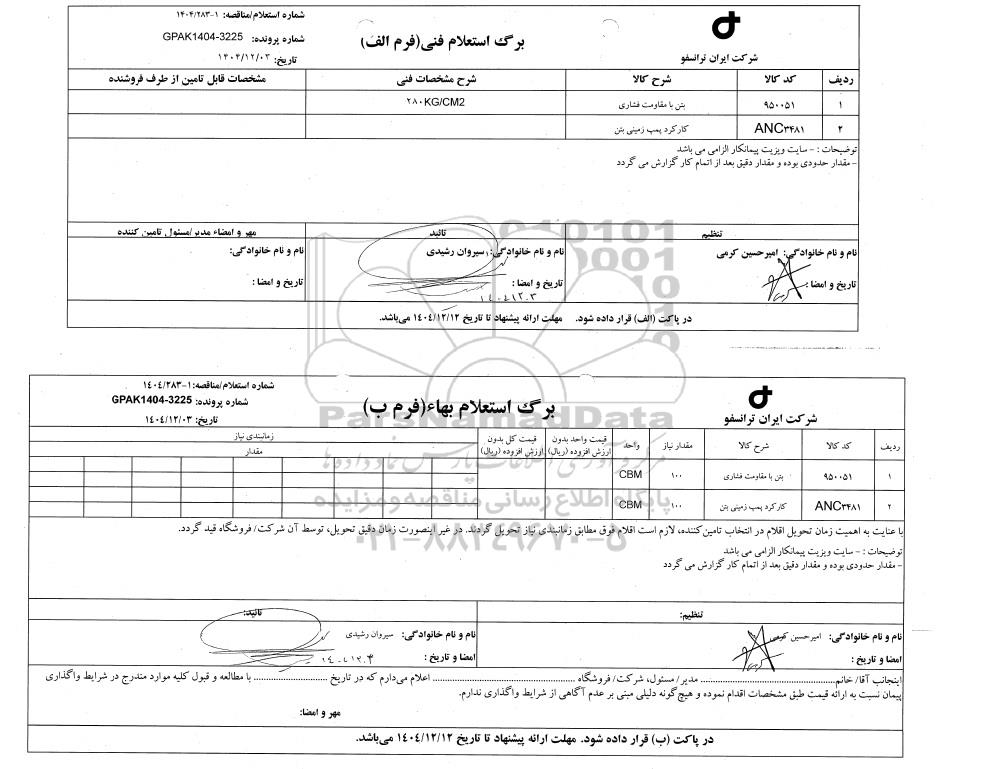 شماره استعلام/مناقصه: ۱۴۰۴/۲۸۳-۱
شماره پرونده: GPAK1404-3225
تاریخ: ۱۴۰۴/۱۲/۰۳
برگ استعلام فنی(فرم الف)
شرکت ایران ترانسفو
ردیف کد کالا شرح کالا شرح مشخصات فنی مشخصات قابل تامین از طرف فروشنده
۱ ۹۵۰۰۵۱ بتن با مقاومت فشاری ۲۸۰KG/CM2
۲ ANC۳۴۸۱ کارکرد پمپ زمینی بتن
توضیحات : - سایت ویزیت پیمانکار الزامی می باشد
- مقدار حدودی بوده و مقدار دقیق بعد از اتمام کار گزارش می گردد
تنظیم تائید مهر و امضاء مدیر/مسئول تامین کننده
نام و نام خانوادگی: امیرحسین کرمی نام و نام خانوادگی: سیروان رشیدی نام و نام خانوادگی:
تاریخ و امضا : تاریخ و امضا : تاریخ و امضا :
۱۴۰۴۱۲.۳
در پاکت (الف) قرار داده شود. مهلت ارائه پیشنهاد تا تاریخ ۱۴۰۴/۱۲/۱۲ می‌باشد.
شماره استعلام/مناقصه:۱۴۰۴/۲۸۳-۱
شماره پرونده: GPAK1404-3225
تاریخ: ۱۴۰۴/۱۲/۰۳
برگ استعلام بهاء(فرم ب)
شرکت ایران ترانسفو
ردیف کد کالا شرح کالا مقدار نیاز واحد قیمت واحد بدون ارزش افزوده (ریال) قیمت کل بدون ارزش افزوده (ریال) زمانبندی نیاز
مقدار
۱ ۹۵۰۰۵۱ بتن با مقاومت فشاری ۱۰۰ CBM
۲ ANC۳۴۸۱ کارکرد پمپ زمینی بتن ۱۰۰ CBM
با عنایت به اهمیت زمان تحویل اقلام در انتخاب تامین‌کننده، لازم است اقلام فوق مطابق زمانبندی نیاز تحویل گردند. در غیر اینصورت زمان دقیق تحویل، توسط آن شرکت/ فروشگاه قید گردد.
توضیحات : - سایت ویزیت پیمانکار الزامی می باشد
- مقدار حدودی بوده و مقدار دقیق بعد از اتمام کار گزارش می گردد
تنظیم: تائید:
نام و نام خانوادگی: امیرحسین کرمی نام و نام خانوادگی: سیروان رشیدی
امضا و تاریخ : امضا و تاریخ :
اینجانب آقا/ خانم........ مدیر/ مسئول، شرکت/ فروشگاه ........ اعلام می‌دارم که در تاریخ ........ با مطالعه و قبول کلیه موارد مندرج در شرایط واگذاری
پیمان نسبت به ارائه قیمت طبق مشخصات اقدام نموده و هیچ‌گونه دلیلی مبنی بر عدم آگاهی از شرایط واگذاری ندارم.
مهر و امضا:
در پاکت (ب) قرار داده شود. مهلت ارائه پیشنهاد تا تاریخ ۱۴۰۴/۱۲/۱۲ می‌باشد.
ParsNamadData
پایگاه اطلاع رسانی مناقصه و مزایده
۰۲۱-۸۸۳۴۹۶۷۰-۵